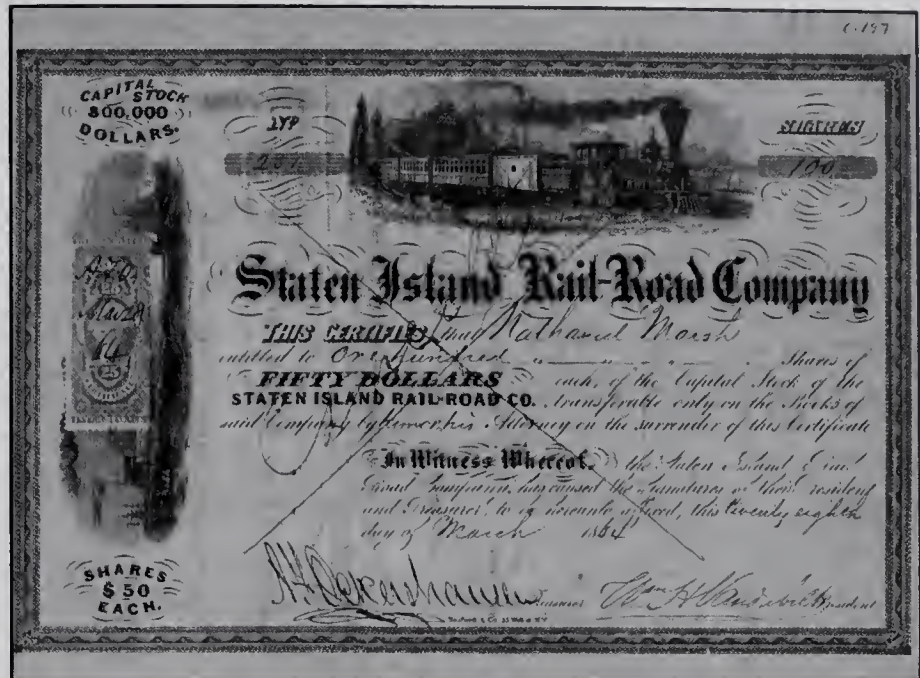 C-197
CAPITAL
STOCK
800,000
DOLLARS.
SHARES
100
25
14
25
Staten Island Rail-Road Company
THIS CERTIFIES that Nathaniel Marsh
entitled to One hundred Shares of
FIFTY DOLLARS each, of the Capital Stock of the
STATEN ISLAND RAIL-ROAD CO. transferable only on the Books of
said Company by him or his Attorney on the surrender of this Certificate
In Witness Whereof, the Staten Island Rail
Road Company, has caused the signatures of their President
and Treasurer to be hereunto affixed, this twenty eighth
day of March 1864
SHARES
$50
EACH.
Treasurer Wm H Vanderbilt President